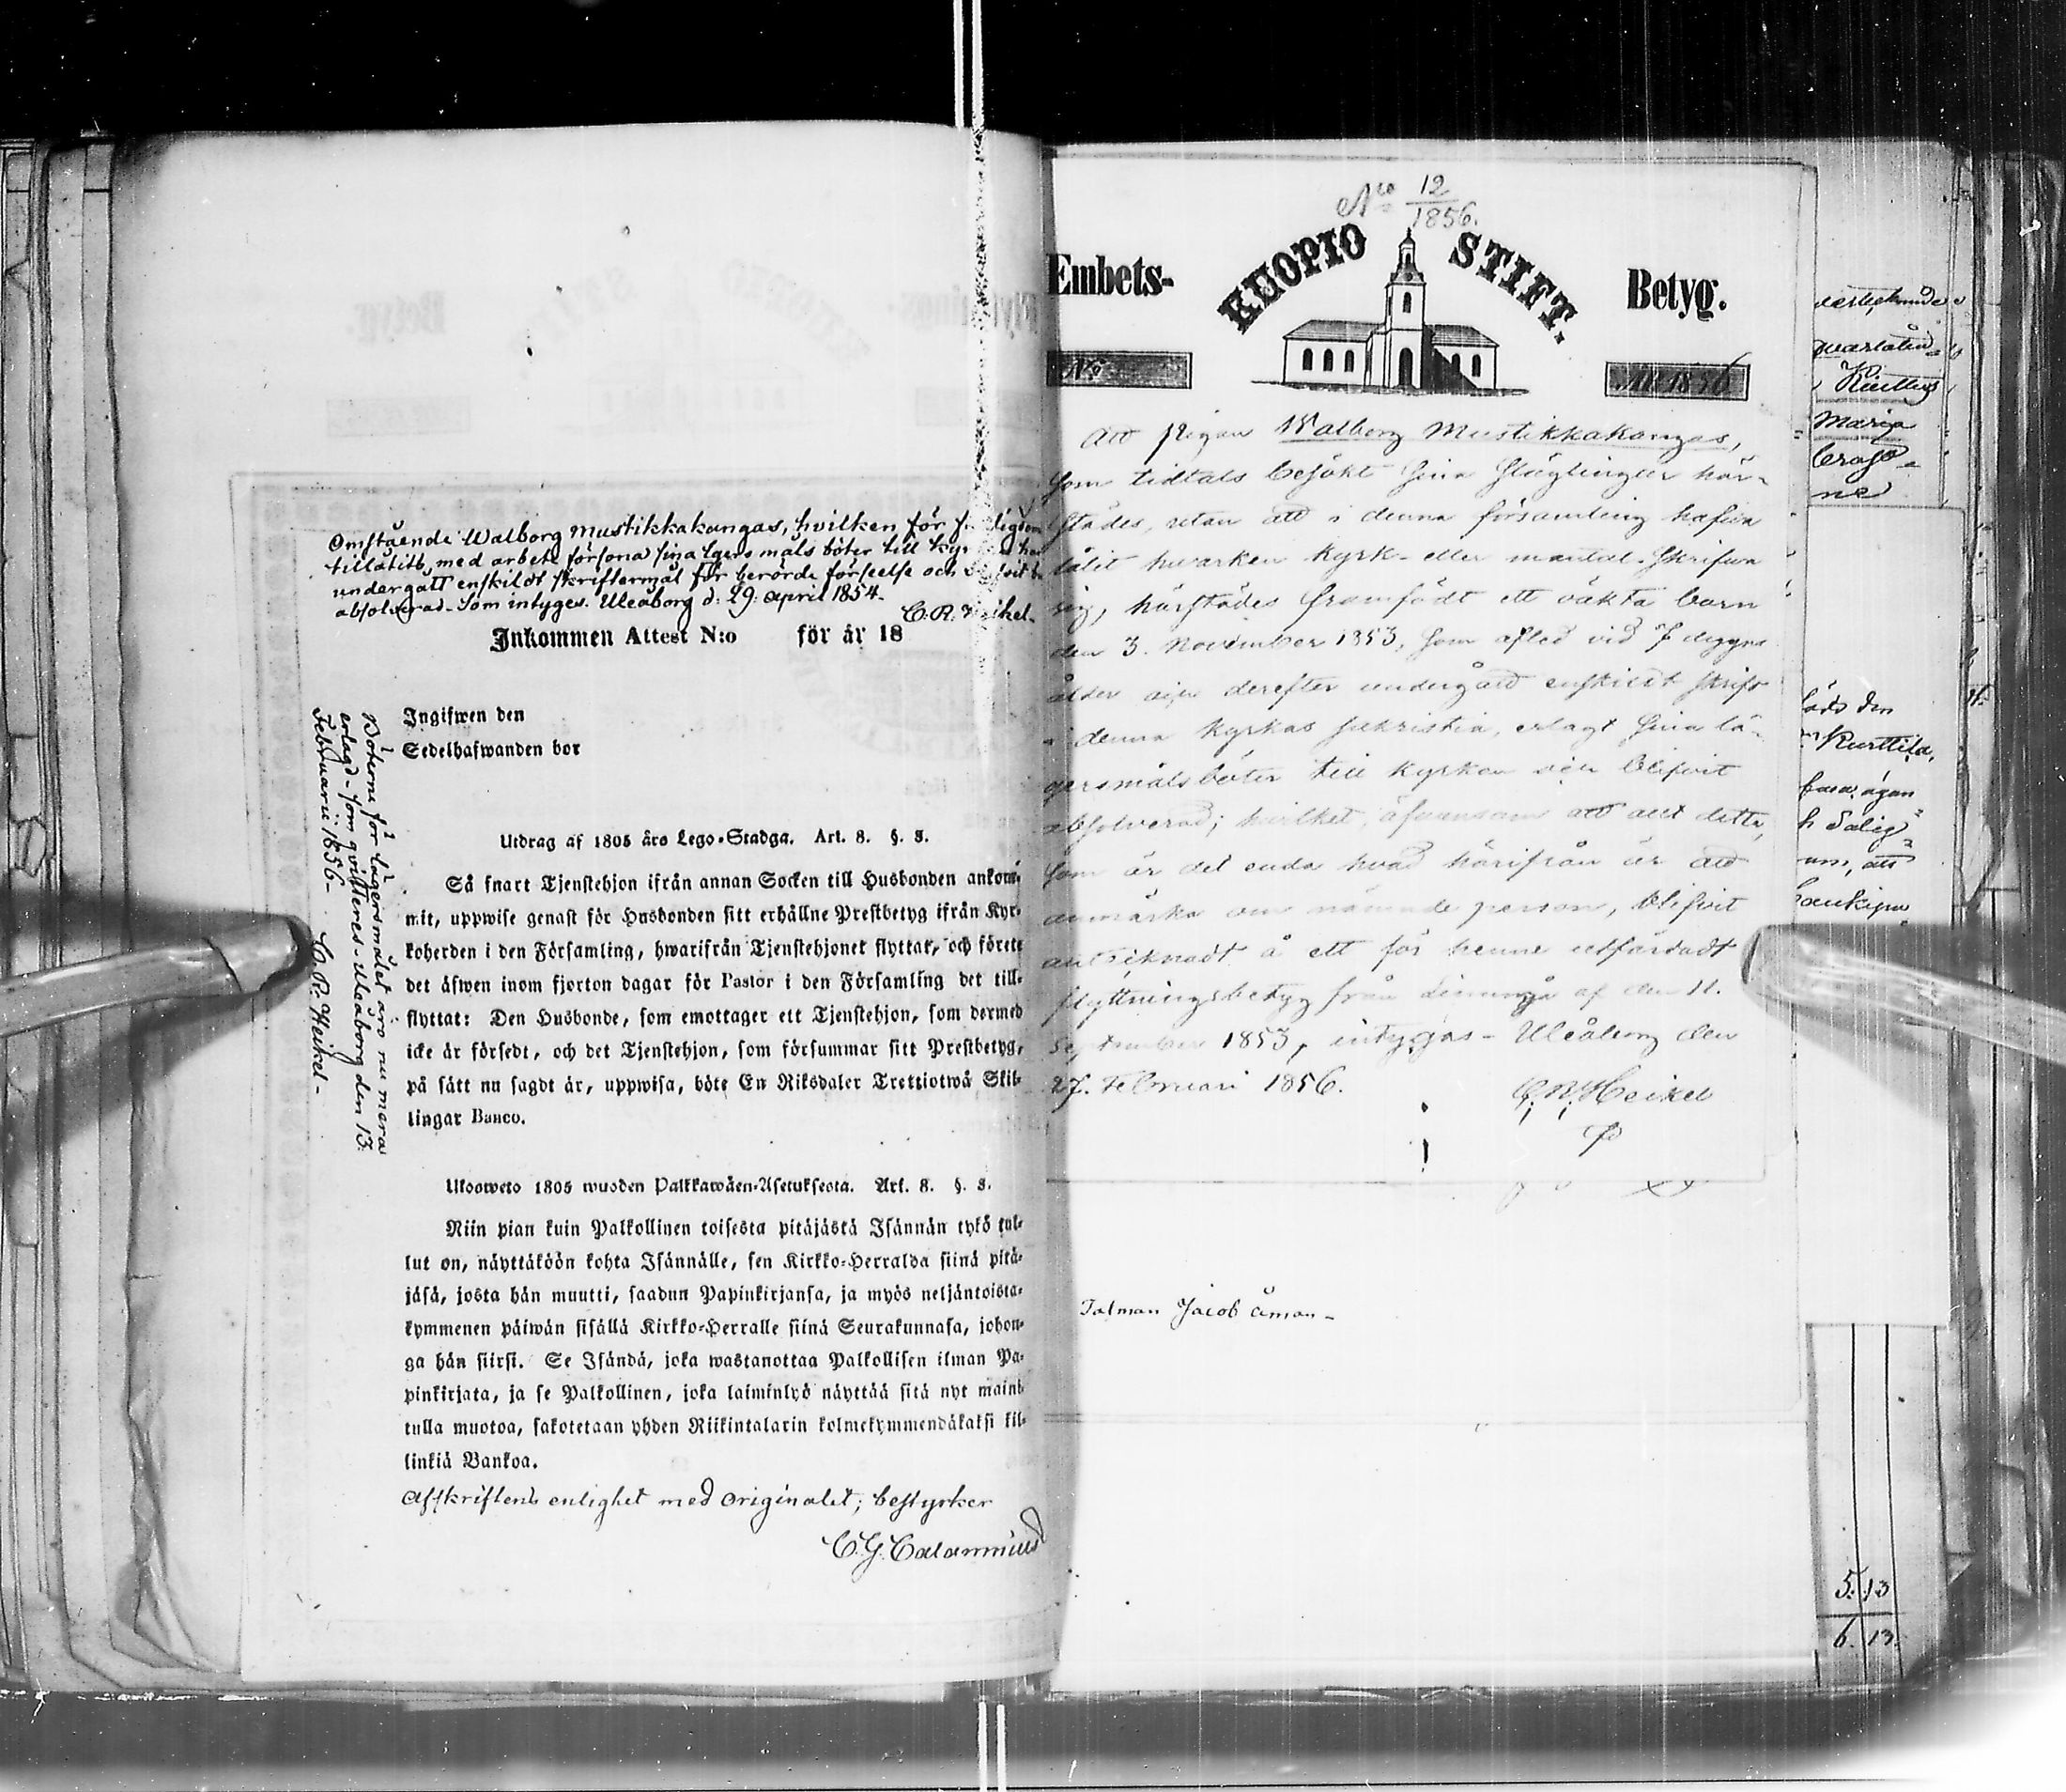 Omstående Walborg Mustikkakangas, hvilken för
tillåtits, med arbete försona sina lägersmåls böter till
undergått enskildt skriftermål för berörde förseelse och
absolverad. Som intyges. Uleåborg d. 29. april 1854.
C. R. Heikel.
Inkommen Attest N:o för år 18
Böterne för lägersmålet äro nu mera
erlagd - som qvitteres - Uleåborg den 13
Februarii 1856 - C. R. Heikel -
Ingifwen den
Sedelhafwanden bor
Utdrag af 1805 års Lego-Stadga. Art. 8. §. 8.
Så snart Tjenstehjon ifrån annan Socken till Husbonden ankom-
mit, uppwise genast för Husbonden sitt erhållne Prestbetyg ifrån Kyr-
koherden i den Församling, hwarifrån Tjenstehjonet flyttat, och förete
det äfwen inom fjorton dagar för Pastor i den Församling det till-
flyttat: Den Husbonde, som emottager ett Tjenstehjon, som dermed
icke är försedt, och det Tjenstehjon, som försummar sitt Prestbetyg,
på sätt nu sagdt är, uppwisa, böte En Riksdaler Trettiotwå Skil-
lingar Banco.
Ulosweto 1805 wuoden Palkkawäen-Asetuksesta. Art. 8. §. 8.
Niin pian kuin Palkollinen toisesta pitäjästä Isännän tykö tul-
lut on, näyttäköön kohta Isännälle, sen Kirkko-Herralda siinä pitä-
jäsä, josta hän muutti, saadun Papinkirjansa, ja myös neljäntoista-
kymmenen päiwän sisällä Kirkko-Herralle siinä Seurakunnasa, johon-
ga hän siirsi. Se Isändä, joka wastanottaa Palkollisen ilman Pa-
pinkirjata, ja se Palkollinen, joka laiminlyö näyttää sitä nyt mainit-
tulla muotoa, sakotetaan yhden Riikintalarin kolmekymmendäkaksi kil-
linkiä Bankoa.
Afskriftens enlighet med originalet; bestyrker
C. G. Calamnius
No 12
1856.
Embets- KUOPIO STIFT. Betyg.
No År 1856
Att Pigan Walborg Mustikkakangas,
som tidtals besökt sina slägtingar här-
städes, utan att i denna församling hafva
låtit hwarken kyrk- eller mantal-skrifva
sig, härstädes framfödt ett oäkta barn
den 3. November 1853, som afled vid 7 dygns
ålder och derefter undergått enskildt skrift
i denna kyrkas sakristia, erlagt sina lä-
gersmålsböter till kyrkan och blifvit
absolverad; hvilket, äfvensom att allt detta,
som är det enda hvad härifrån är att
anmärka om nämnde person, blifvit
antecknadt å ett för henne utfärdadt
flyttningsbetyg från af den 11.
September 1853, intygas - Uleåborg den
27. Februari 1856. C. R. Heikel
Talman Jacob Åman -
Maria
ne
läds den
Kurttila,
h Salig
um, att
5. 13
6. 13.